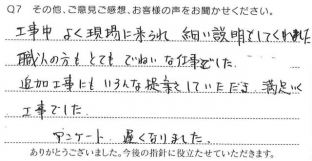 Q7 その他、ご意見ご感想、お客様の声をお聞かせください。
工事中 よく現場に来られ 細い説明をしてくれました
職人の方も とても ていねいな仕事でした。
追加工事にも いろんな提案をしていただき 満足いく
工事でした。
アンケート 遅くなりました。
ありがとうございました。今後の指針に役立たせていただきます。